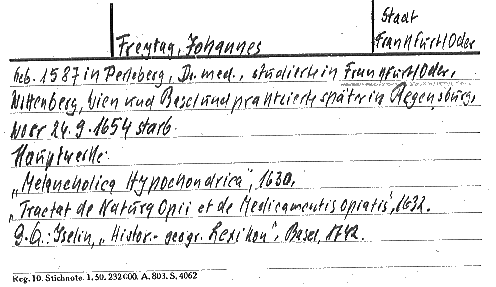 Freytag, Johannes
Stadt
Frankfurt/Oder
Geb. 1587 in Perleberg, Dr. med., studierte in Frankfurt/Oder,
Wittenberg, Wien und Basel und praktizierte später in Regensburg,
wo er 24.9.1654 starb.
Hauptwerke:
„Melancholica Hypochondrica", 1630,
„Tractat de Natura Opii et de Medicamentis opiatis", 1632.
g. Q.: Iselin, „Histor.- geogr. Lexikon", Basel, 1742.
Reg. 10. Stichnote. 1. 50. 232 000. A. 803. S. 4062